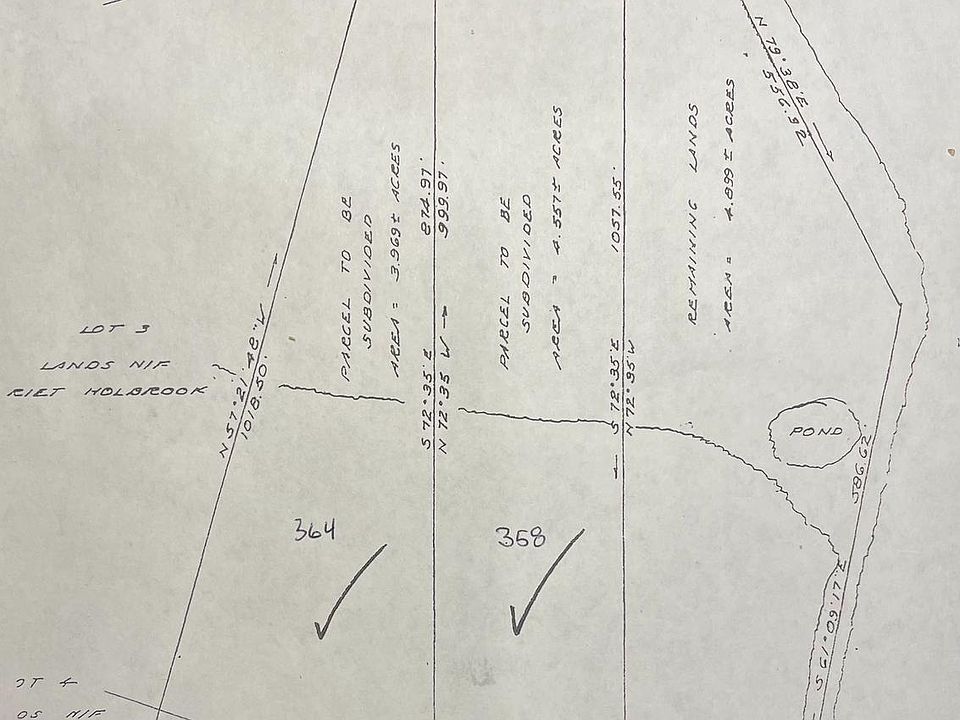 LOT 3
LANDS N/F
RIET HOLBROOK
N 57°21'48"W
1018.50'
PARCEL TO BE
SUBDIVIDED
AREA = 3.969± ACRES
S 72°35'E 874.97'
N 72°35'W 999.97'
PARCEL TO BE
SUBDIVIDED
AREA = 4.557± ACRES
S 72°35'E 1057.55'
N 72°35'W
REMAINING LANDS
AREA = 4.899± ACRES
N 79°38'E
556.92
POND
586.62'
S 61°09'17"E
364
358
OT 4
DS N/F